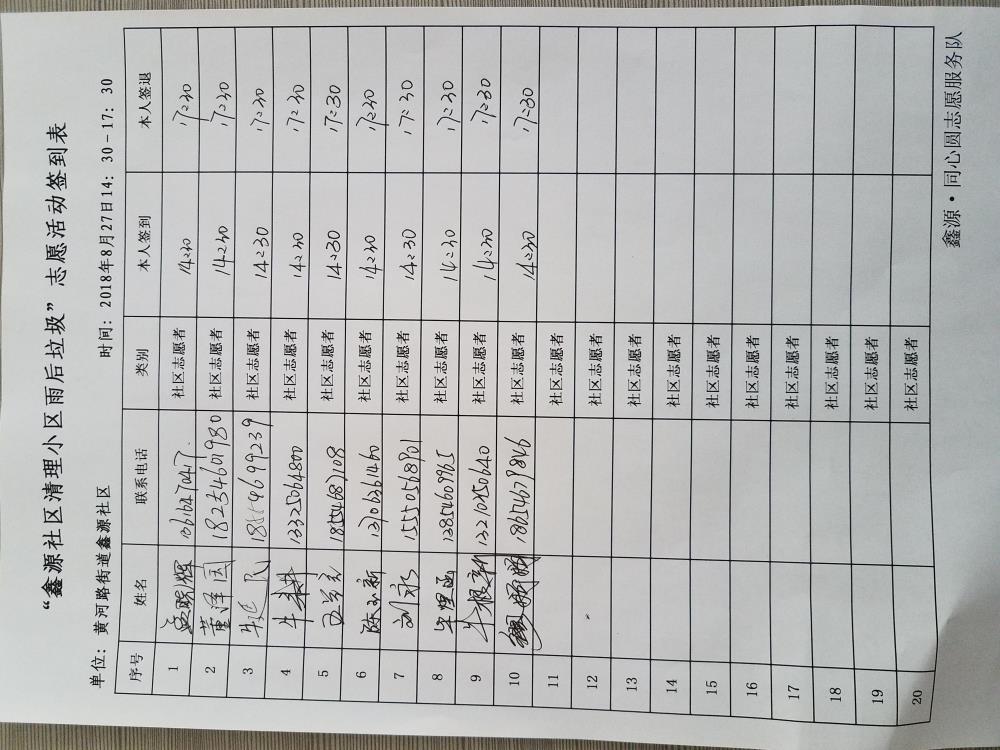 “鑫源社区清理小区雨后垃圾”志愿活动签到表
单位：黄河路街道鑫源社区 时间：2018年8月27日14：30-17：30
序号 姓名 联系电话 类别 本人签到 本人签退
1 孟晓辉 社区志愿者 14:30 17:30
2 董泽国 18254601980 社区志愿者 14:30 17:30
3 牛延民 社区志愿者 14:30 17:30
4 13325064800 社区志愿者 14:30 17:30
5 18554687108 社区志愿者 14:30 17:30
6 13706361460 社区志愿者 14:30 17:30
7 刘永 15550568901 社区志愿者 14:30 17:30
8 13854609965 社区志愿者 14:30 17:30
9 社区志愿者 14:30 17:30
10 社区志愿者 14:30 17:30
11 社区志愿者
12 社区志愿者
13 社区志愿者
14 社区志愿者
15 社区志愿者
16 社区志愿者
17 社区志愿者
18 社区志愿者
19 社区志愿者
20 社区志愿者
鑫源·同心圆志愿服务队